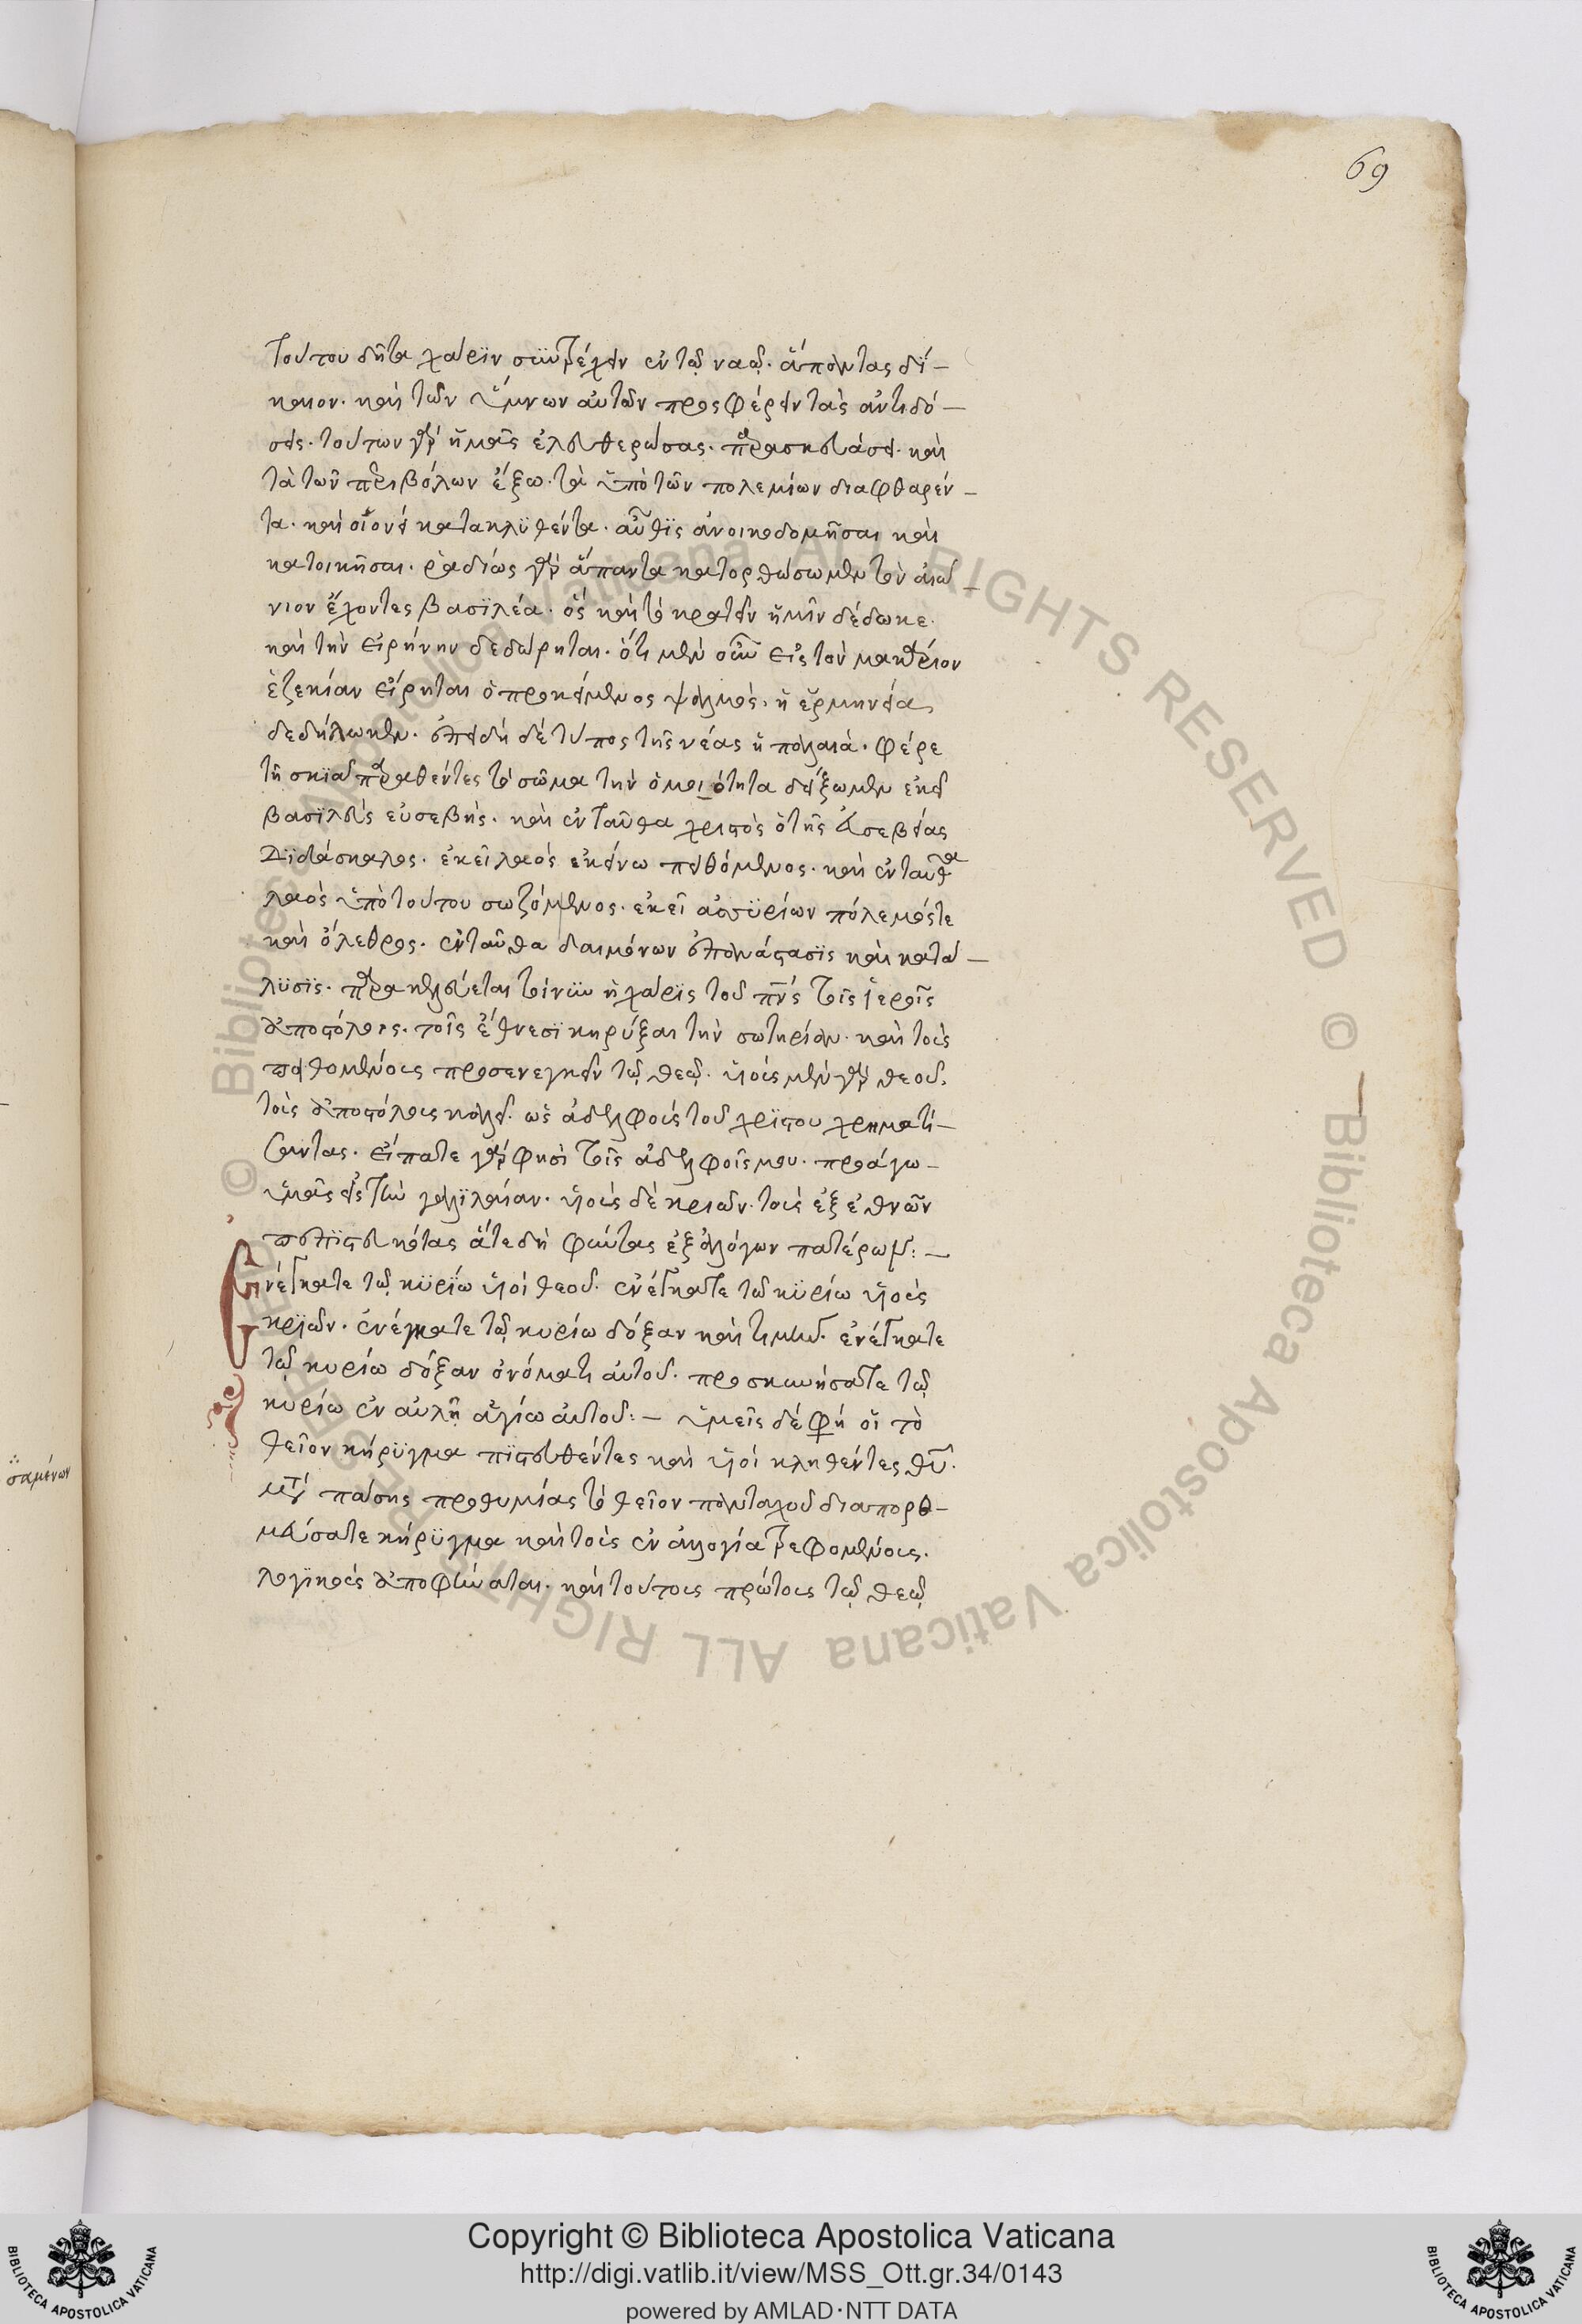 69
τούτου δῆτα χάριν συντρέχειν ἐν τῷ ναῷ. ἅπαντας δί-
καιον. καὶ τῶν ὕμνων αὐτῶν προσφέρειν τὰς ἀντιδό-
σεις. τούτων γὰρ ἡμᾶς ἐλευθερώσας. παρασκευάσει. καὶ
τὰ τῶν περιβόλων ἔξω. τὰ ὑπὸ τῶν πολεμίων διαφθαρέν-
τα. καὶ οἱονεὶ κατακλυθέντα. αὖθις ἀνοικοδομῆσαι καὶ
κατοικῆσαι. ῥαδίως γὰρ ἅπαντα κατορθώσωμεν τὸν αἰώ-
νιον ἔχοντες βασιλέα. ὃς καὶ τὸ κρατεῖν ἡμῖν δέδωκε.
καὶ τὴν εἰρήνην δεδώρηται. ὅτι μὲν οὖν εἰς τὸν μακάριον
ἐζεκίαν εἴρηται ὁ προκείμενος ψαλμός. ἡ ἑρμηνεία
δεδήλωκεν. ἐπειδὴ δὲ τύπος τῆς νέας ἡ παλαιά. φέρε
τῇ σκιᾷ παραθέντες τὸ σῶμα τὴν ὁμοιότητα δείξωμεν ἐκεῖ
βασιλεὺς εὐσεβής. καὶ ἐνταῦθα χριστὸς ὁ τῆς εὐσεβείας
διδάσκαλος. ἐκεῖ λαὸς ἐκείνω πειθόμενος. καὶ ἐνταῦθα
λαὸς ὑπὸ τούτου σωζόμενος. ἐκεῖ ἀσσυρίων πόλεμός τε
καὶ ὄλεθρος. ἐνταῦθα δαιμόνων ἐπανάστασις καὶ κατά-
λυσις. παρακελεύεται τοίνυν ἡ χάρις τοῦ πνς τοῖς ἱεροῖς
ἀποστόλοις. τοῖς ἔθνεσι κηρύξαι τὴν σωτηρίαν. καὶ τοὺς
πειθομένους προσενεγκεῖν τῷ θεῷ. υἱοὺς μὲν γὰρ θεοῦ,
τοὺς ἀποστόλους καλεῖ. ὡς ἀδελφοὺς τοῦ χριστου χρηματί-
ζοντας. εἴπατε γὰρ φησὶ τοῖς ἀδελφοῖς μου. προάγω
ὑμᾶς εἰς τὴν γαλιλαίαν. υἱοὺς δὲ κριῶν. τοὺς ἐξ ἐθνῶν
πεπιστευκότας ἅτε δὴ φύντας ἐξ ἀλόγων πατέρων:-
Ενέγκατε τῷ κυρίω υἱοὶ θεοῦ. ἐνέγκατε τῷ κυρίω υἱοὺς
κριῶν. ἐνέγκατε τῷ κυρίω δόξαν καὶ τιμήν. ἐνέγκατε
τῷ κυρίω δόξαν ὀνόματι αὐτοῦ. προσκυνήσατε τῷ
κυρίω ἐν αὐλῇ ἁγίω αὐτοῦ:- ὑμεῖς δέ φη οἱ τὸ
θεῖον κήρυγμα πιστευθέντες καὶ υἱοὶ κληθέντες θυ.
μετὰ πάσης προθυμίας τὸ θεῖον πανταχοῦ διαπορθ-
μεύσατε κήρυγμα καὶ τοὺς ἐν ἀλογία τρεφομένους.
λογικοὺς ἀποφήναται. καὶ τούτους πρώτους τῷ θεῷ
σαμένων
Copyright © Biblioteca Apostolica Vaticana
http://digi.vatlib.it/view/MSS_Ott.gr.34/0143
powered by AMLAD·NTT DATA
BIBLIOTECA APOSTOLICA VATICANA
BIBLIOTECA APOSTOLICA VATICANA
© Biblioteca Apostolica Vaticana ALL RIGHTS RESERVED © Biblioteca Apostolica Vaticana ALL RIGHTS RESERVED